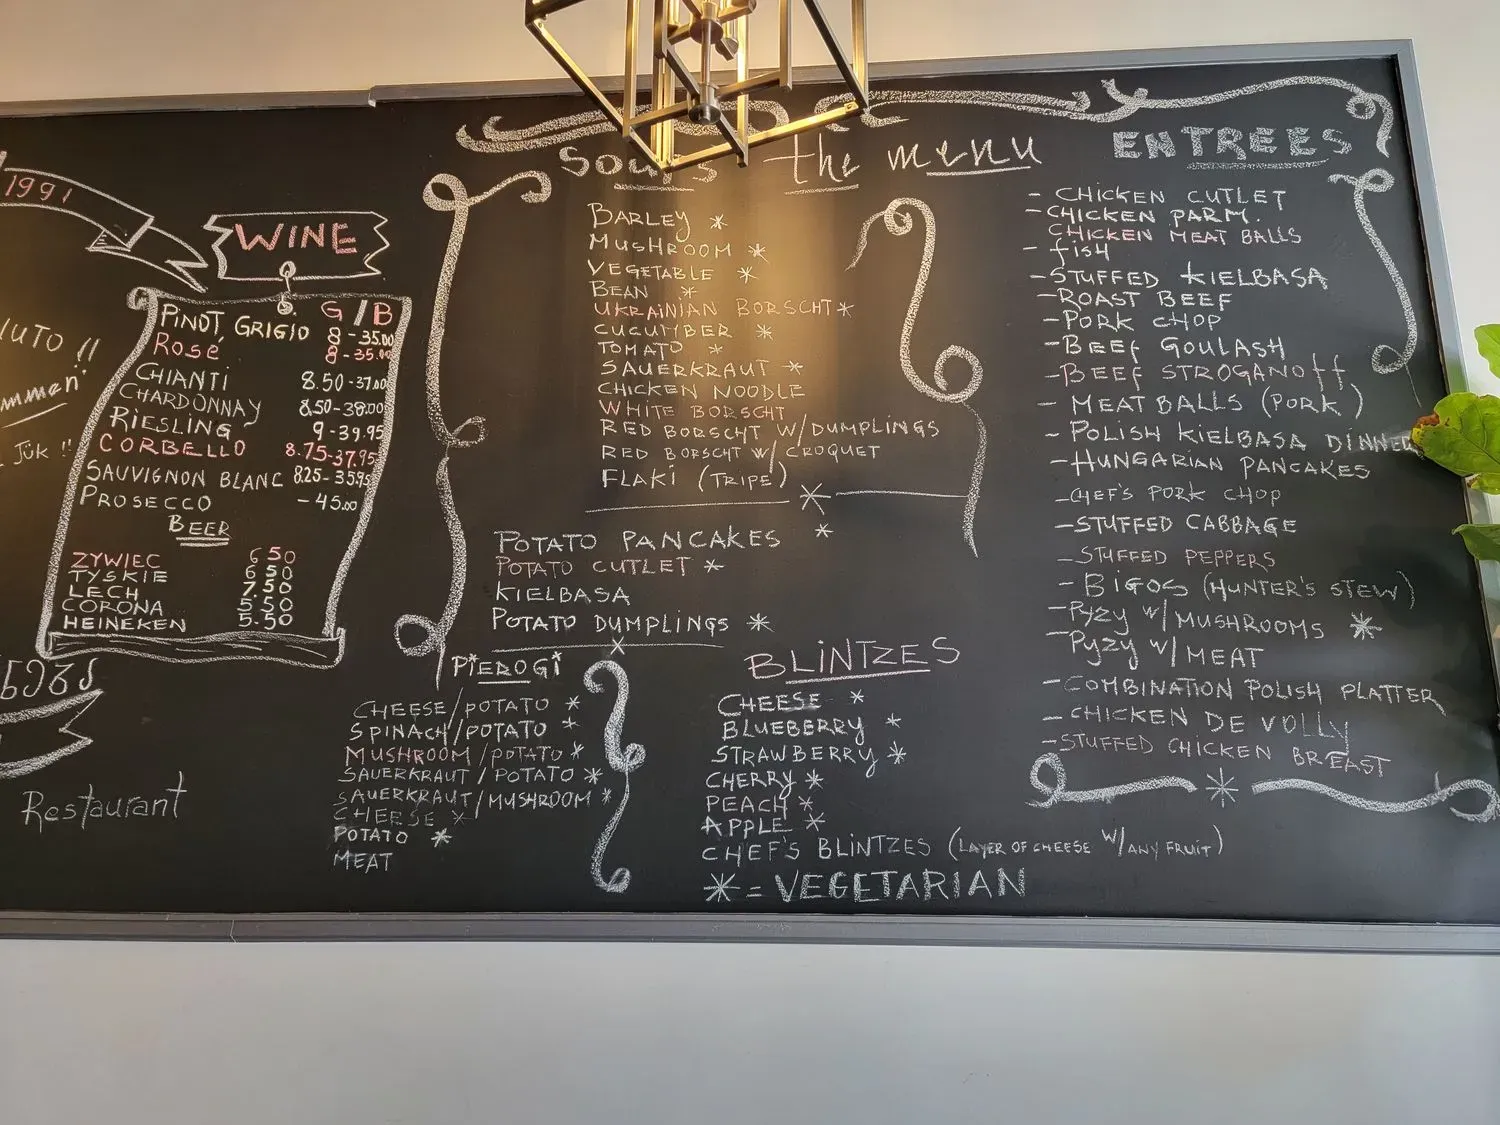 1991
UTO !!
mmen!
Jük !!
Restaurant
WINE
G/B
PINOT GRIGIO 8-35.00
ROSÉ 8-35.00
CHIANTI 8.50-37.00
CHARDONNAY 8.50-38.00
RIESLING 9-39.95
CORBELLO 8.75-37.95
SAUVIGNON BLANC 8.25-35.95
PROSECCO -45.00
BEER
ZYWIEC 6.50
TYSKIE 6.50
LECH 7.50
CORONA 5.50
HEINEKEN 5.50
the menu
SOUPS
BARLEY *
MUSHROOM *
VEGETABLE *
BEAN *
UKRAINIAN BORSCHT *
CUCUMBER *
TOMATO *
SAUERKRAUT *
CHICKEN NOODLE
WHITE BORSCHT
RED BORSCHT W/DUMPLINGS
RED BORSCHT W/ CROQUET
FLAKI (TRIPE)
POTATO PANCAKES *
POTATO CUTLET *
KIELBASA
POTATO DUMPLINGS *
PIEROGI
CHEESE/POTATO *
SPINACH/POTATO *
MUSHROOM/POTATO *
SAUERKRAUT/POTATO *
SAUERKRAUT/MUSHROOM *
CHEESE *
POTATO *
MEAT
BLINTZES
CHEESE *
BLUEBERRY *
STRAWBERRY *
CHERRY *
PEACH *
APPLE *
CHEF'S BLINTZES (LAYER OF CHEESE W/ANY FRUIT)
* = VEGETARIAN
ENTREES
- CHICKEN CUTLET
- CHICKEN PARM.
CHICKEN MEAT BALLS
- fish
- STUFFED KIELBASA
- ROAST BEEF
- PORK CHOP
- BEEF GOULASH
- BEEF STROGANOff
- MEAT BALLS (PORK)
- POLISH KIELBASA DINNER
- HUNGARIAN PANCAKES
- CHEF'S PORK CHOP
- STUFFED CABBAGE
- STUFFED PEPPERS
- BIGOS (HUNTER'S STEW)
- PYZY W/MUSHROOMS *
- PYZY W/MEAT
- COMBINATION POLISH PLATTER
- CHICKEN DE VOLLY
- STUFFED CHICKEN BREAST